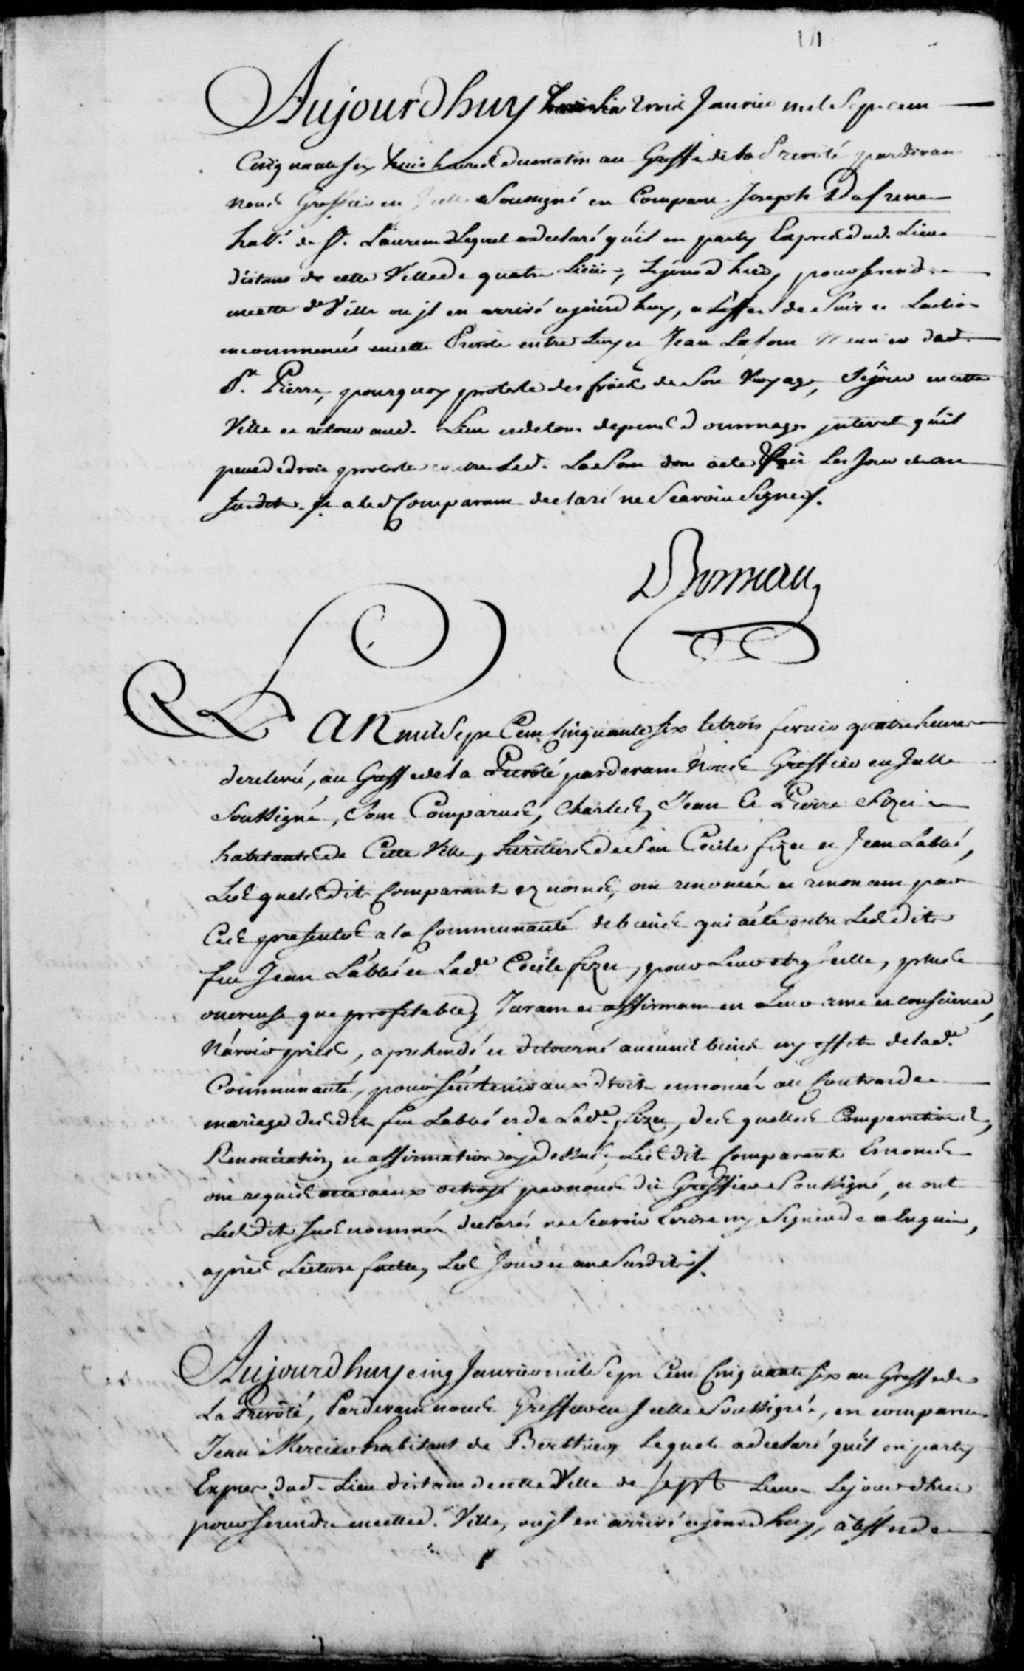 Aujourdhuy trois Janvier mil Sept cens
Cinquante six huit heures du matin au Greffe de la Prevoté pardevan
nous Greffier en Icelle Soussigné en Comparu Joseph Dufrene
habt. de St. Laurens Lequel a declaré qu'il en party Exprès dud. Lieu
distans de cette Ville de quatre Lieües, Le jour d'huy, pour se rendre
en cette de. Ville ou jl en arrivé ajourdhuy, a L'effet de Suivre Laction
encommencé en cette Prevoté entre Luy et Jean Lafon Meunier dud.
St. Pierre, pourquoy proteste des fraix de Son Voyage, Sejour en cette
Ville et retour aud. Lieu et de tous depens d'ommages jnterest qu'il
peut de droit proteste contre Led. Lafon don acte fait Les Jour et an
Susdits. Et a led Comparant declaré ne Scavoir Signer/.
Boman
L'AN mil Sept Cens Cinquante Six le trois fevrier quatre heures
de relevé, au Greffe de la Prevôté pardevant Nous Greffier en Jcelle
Soussigné, Sont Comparus, Charles, Jean et Pierre Fizet
habitants de Cette Ville, heritiers de feu Cecile fizet et Jean Labbé,
Lesquels dits Comparant ez noms, ont renoncé et renoncent par
Ces presentes a la Communauté de biens qui a été entre Lesdits
feu Jean Labbé et Lade. Cecile fizet, pour Leur etre jcelle, plus
onereuse que profitable, Jurant et affirmant en Leur ame et conscience,
N'avoir pris, aprehendé et detourné aucuns biens ny effets de lade.
Communauté, pour s'en tenir aux droits ennoncés au Contrat de
mariage desdits feu Labbé et de Lade. fizet, des quelles Comparution,
Renonciation et affirmation cy Dessus, Lesdits Comparants Es noms
ont requis acte a eux octroyé par nous dit Greffier Soussigné, et ont
Lesdits Susnommés declarés ne Scavoir Ecrire ny Signer de ce Enquis,
après Lecture faitte, Les Jour et an Susdits/.
Aujourdhuy cinq Janvier mil Sept Cens Cinquante Six au Greffe de
La Prevôté, Pardevant nous Greffier en Jcelle Soussigné, en comparu
Jean Mercier habitant de Berthier Lequel a declaré qu'il en party
Exprès dud. Lieu distans de cette Ville de Sept Lieues Le jour d'hier
pour se rendre en cette de. Ville, ou jl en arrivé ajourdhuy, à L'effet de